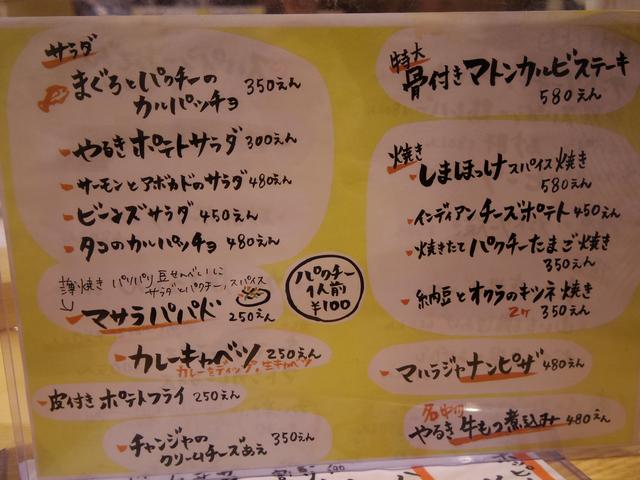 サラダ
まぐろとパクチーの
カルパッチョ 350えん
やるきポテトサラダ 300えん
サーモンとアボカドのサラダ 480えん
ビーンズサラダ 450えん
タコのカルパッチョ 480えん
パリパリ豆せんべいに
サラダとパクチー、スパイス
マサラパパド 250えん
カレーキャベツ 250えん
カレーをディップ。生キャベツ
皮付きポテトフライ 250えん
チャンジャの
クリームチーズあえ 350えん
パクチー
1人前
¥100
特大
骨付きマトンカルビステーキ
580えん
焼き
しまほっけスパイス焼き
580えん
インディアンチーズポテト 450えん
焼きたてパクチーたまご焼き
350えん
納豆とオクラのキツネ焼き
2ケ 350えん
マハラジャナンピザ 480えん
名中付
やるき牛もつ煮込み 480えん